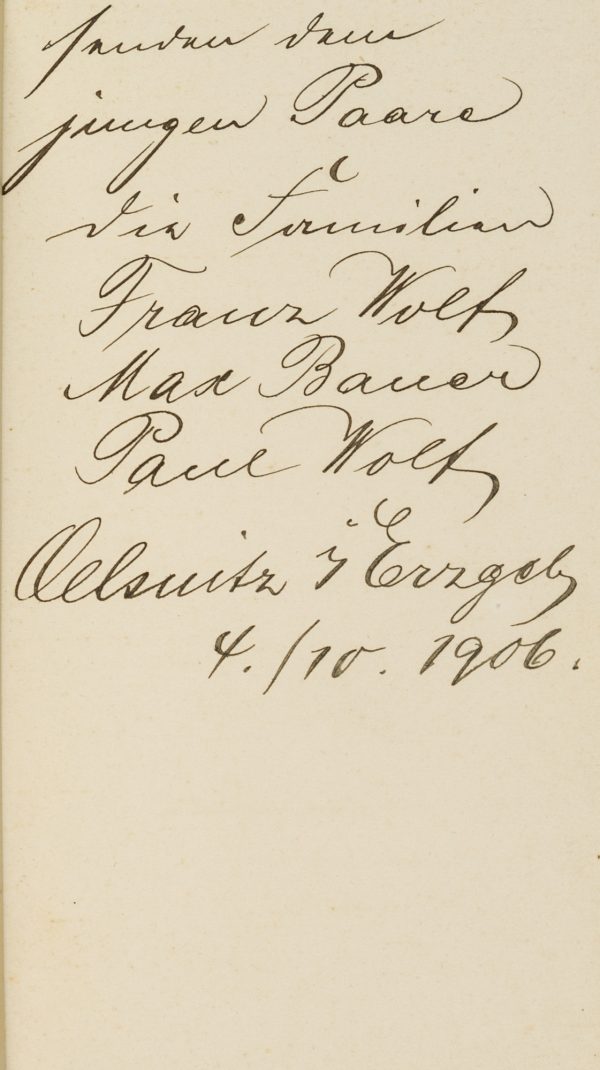 senden dem
jungen Paare
die Familien
Franz Wolf
Max Bauer
Paul Wolf
Oelsnitz i/Erzgeb
4./10. 1906.